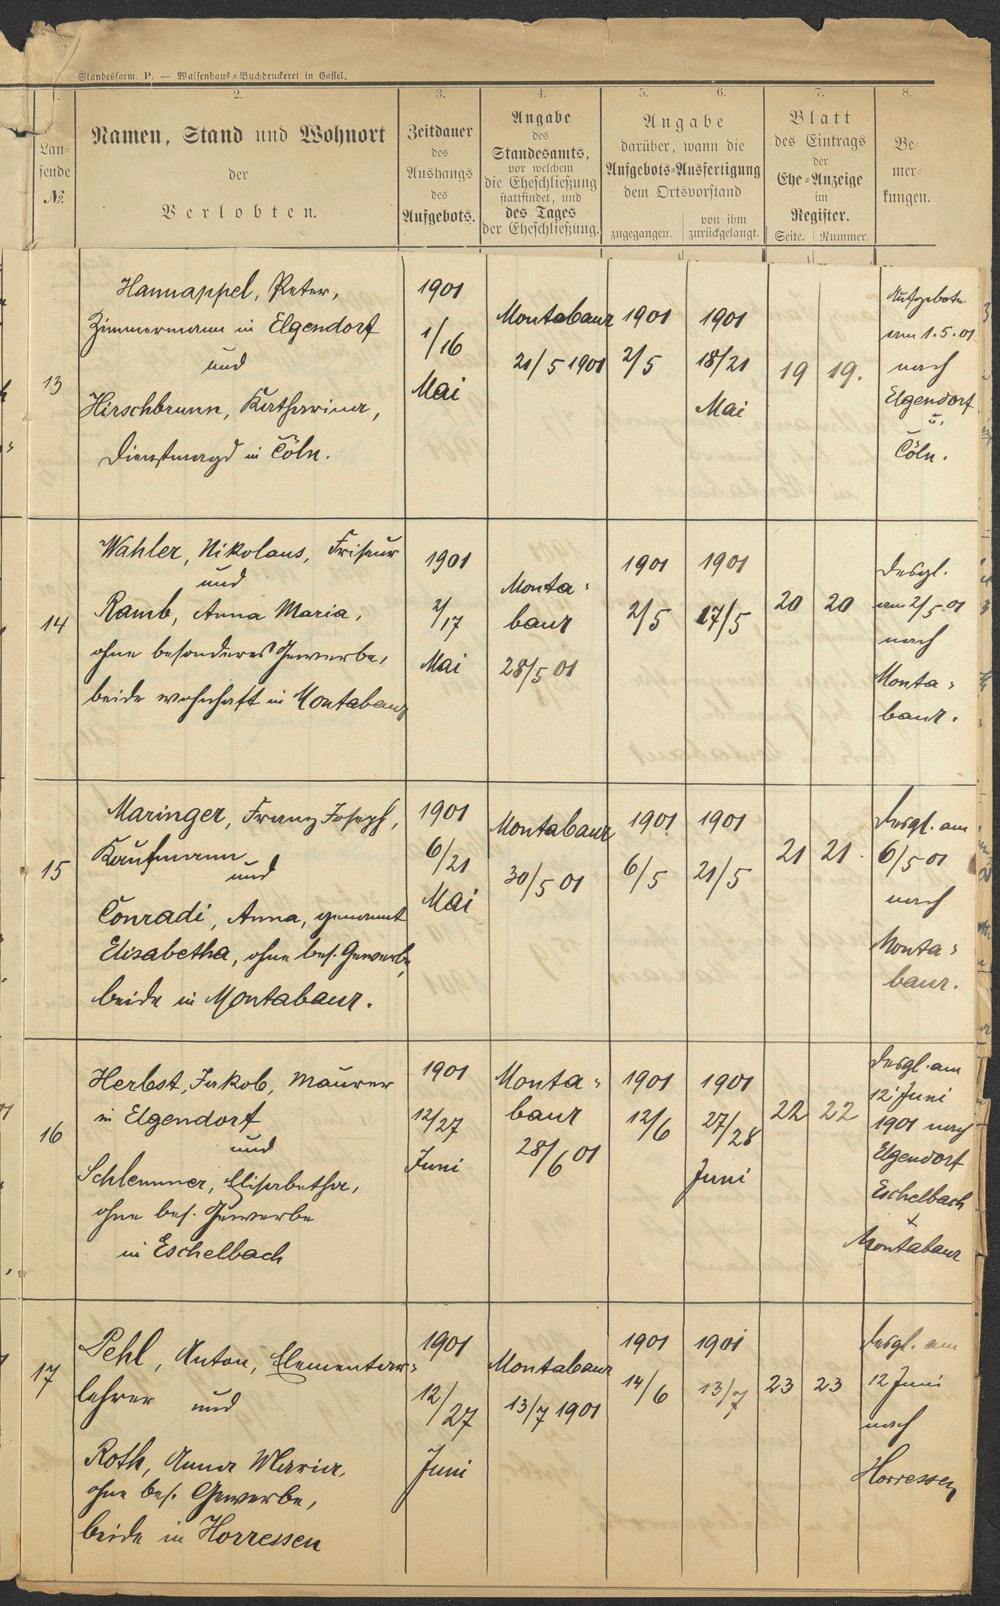 Standesform. P. — Waisenhaus-Buchdruckerei in Cassel.
1.
2.
3.
4.
5.
6.
7.
8.
Lau-
fende
№.
Namen, Stand und Wohnort
der
Verlobten.
Zeitdauer
des
Aushangs
des
Aufgebots.
Angabe
des
Standesamts,
vor welchem
die Eheschließung
stattfindet, und
des Tages
der Eheschließung.
Angabe
darüber, wann die
Aufgebots-Ausfertigung
dem Ortsvorstand
zugegangen.
von ihm
zurückgelangt.
Blatt
des Eintrags
der
Ehe-Anzeige
im
Register.
Seite.
Nummer.
Be-
mer-
kungen.
13
Hannappel, Peter,
Zimmermann in Elgendorf
und
Hirschbrunn, Katharina,
Dienstmagd in Cöln.
1901
1/16
Mai
Montabaur
21/5 1901
1901
2/5
1901
18/21
Mai
19
19.
Aufgebote
am 1.5.01
nach
Elgendorf
u.
Cöln.
14
Wahler, Nikolaus, Friseur
und
Ramb, Anna Maria,
ohne besonderes Gewerbe,
beide wohnhaft in Montabaur
1901
2/17
Mai
Monta-
baur
28/5 01
1901
2/5
1901
17/5
20
20
desgl.
am 2/5 01
nach
Monta-
baur.
15
Maringer, Franz Joseph,
Kaufmann
und
Conradi, Anna, genannt
Elisabetha, ohne bes. Gewerbe,
beide in Montabaur.
1901
6/21
Mai
Montabaur
30/5 01
1901
6/5
1901
21/5
21
21.
desgl. am
6/5 01
nach
Monta-
baur.
16
Herbst, Jakob, Maurer
in Elgendorf
und
Schlemmer, Elisabetha,
ohne bes. Gewerbe
in Eschelbach
1901
12/27
Juni
Monta-
baur
28/6 01
1901
12/6
1901
27/28
Juni
22
22
desgl. am
12 Juni
1901 nach
Elgendorf
Eschelbach
+
Montabaur
17
Pehl, Anton, Elementar-
lehrer und
Roth, Anna Maria,
ohne bes. Gewerbe,
beide in Horressen
1901
12/27
Juni
Montabaur
13/7 1901
1901
14/6
1901
13/7
23
23
desgl. am
12 Juni
nach
Horressen